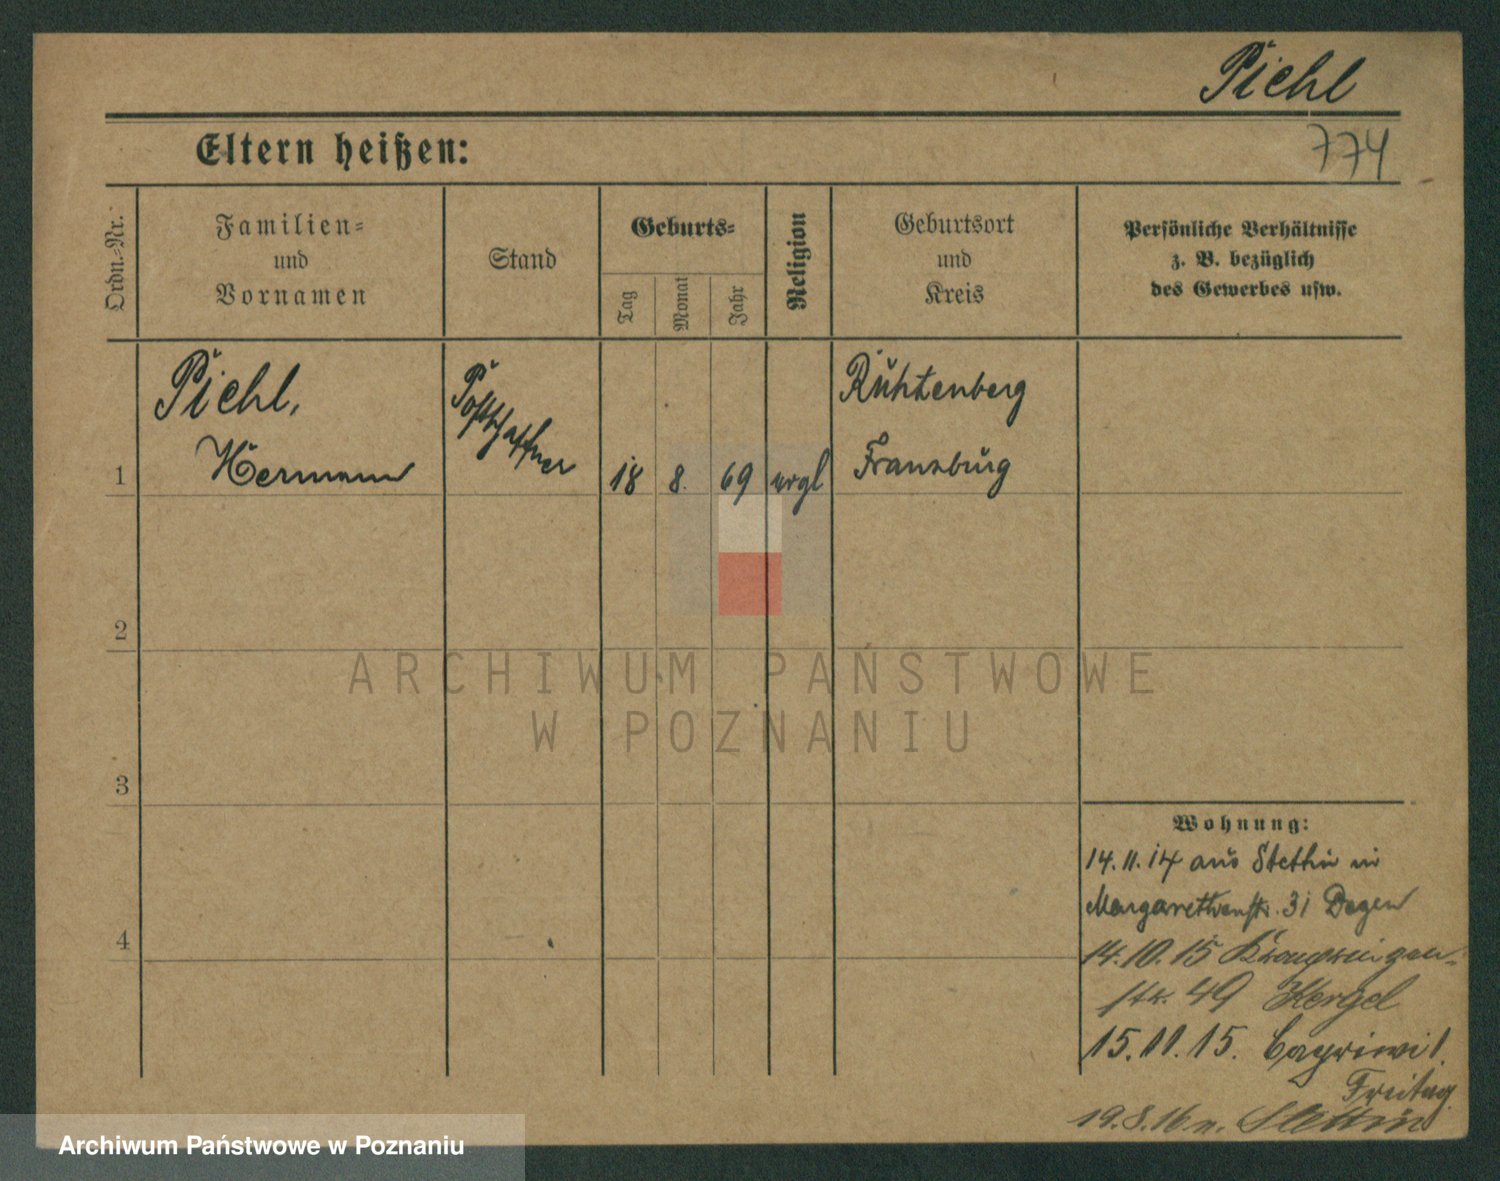 Piehl
774
Eltern heißen:
Ordn.-Nr.
Familien-
und
Vornamen
Stand
Geburts-
Tag
Monat
Jahr
Religion
Geburtsort
und
Kreis
Persönliche Verhältnisse
z. B. bezüglich
des Gewerbes usw.
1
Piehl,
Hermann
Postschaffner
18
8.
69
evgl
Rühtenberg
Franzburg
2
3
4
ARCHIWUM PAŃSTWOWE
W POZNANIU
Wohnung:
14.11.14 aus Stettin in
Margarethenstr. 31 Degen
14.10.15 Kronprinzen-
str. 49 Hergel
15.11.15.
Freitag
19.8.16 n. Stettin
Archiwum Państwowe w Poznaniu